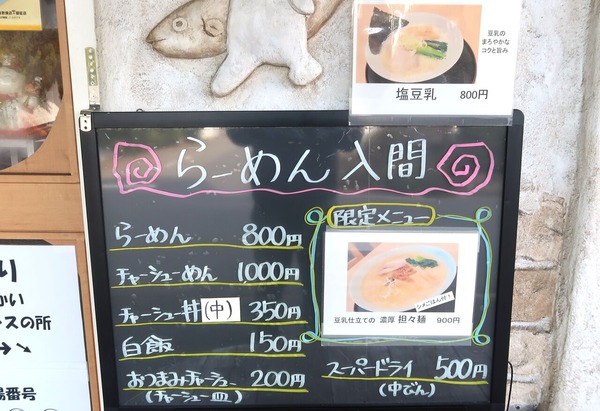 豆乳の
まろやかな
コクと旨み
塩豆乳 800円
らーめん 入間
らーめん 800円
チャーシューめん 1,000円
チャーシュー丼(中) 350円
白飯 150円
おつまみチャーシュー 200円
(チャーシュー皿)
限定メニュー
〆ごはん付!
豆乳仕立ての 濃厚 担々麺 900円
スーパードライ 500円
(中びん)
り
かい
ースの所
→↘
場番号